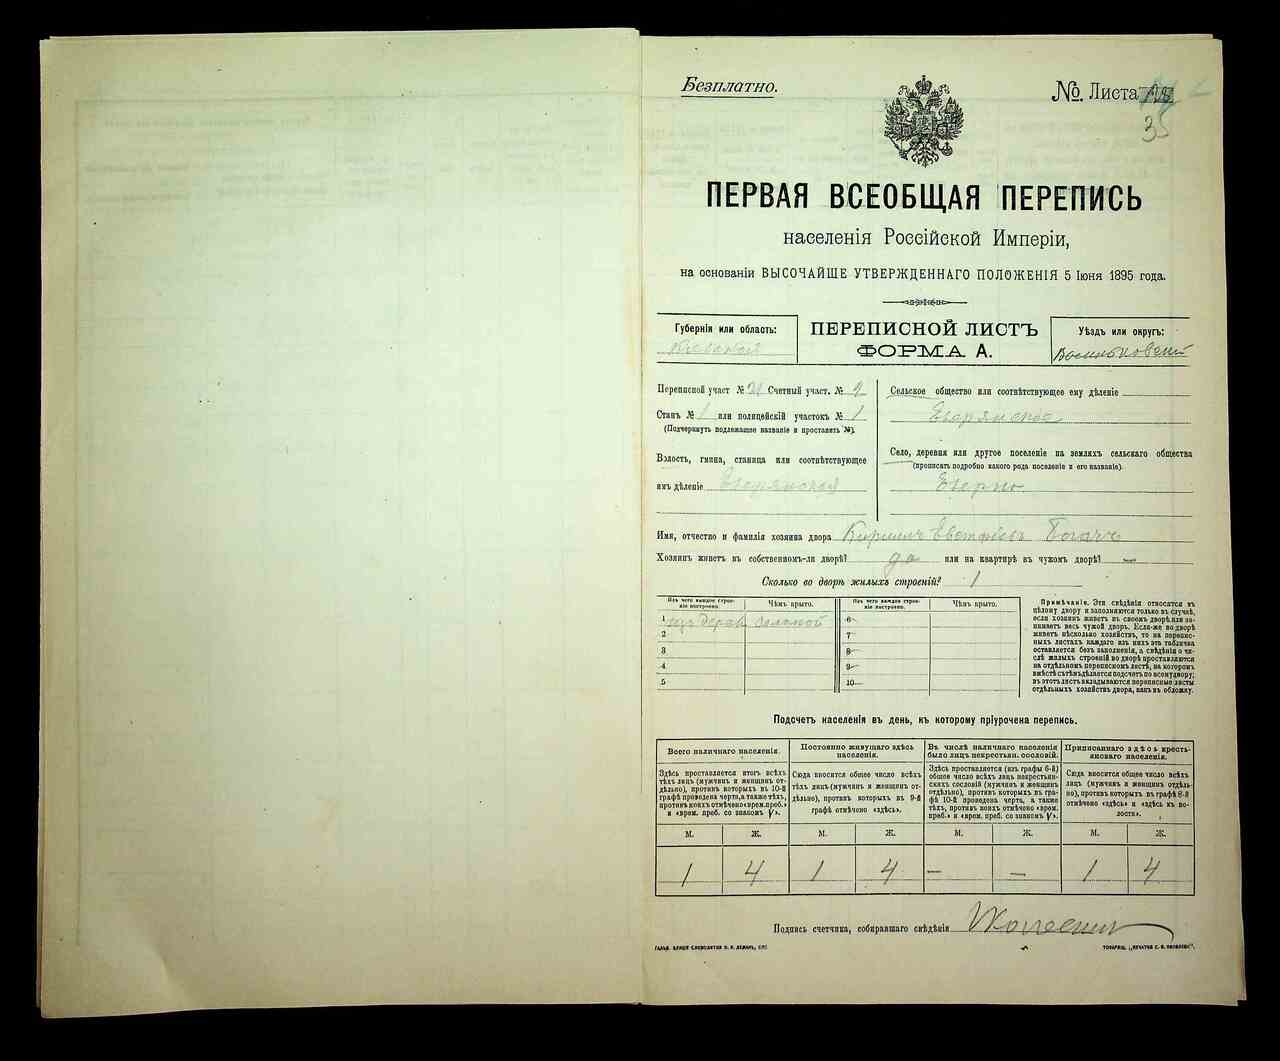 Безплатно.
№. Листа
35
ПЕРВАЯ ВСЕОБЩАЯ ПЕРЕПИСЬ
населенія Россійской Имперіи,
на основаніи ВЫСОЧАЙШЕ УТВЕРЖДЕННАГО ПОЛОЖЕНІЯ 5 Іюня 1895 года.
Губернія или область:
Кіевская
ПЕРЕПИСНОЙ ЛИСТЪ
ФОРМА А.
Уѣздъ или округъ:
Васильковскій
Переписной участ № 21 Счетный участ. № 2
Станъ № 1 или полицейскій участокъ № 1
(Подчеркнуть подлежащее названіе и проставить №).
Волость, гмина, станица или соотвѣтствующее
имъ дѣленіе Езерянская
Сельское общество или соотвѣтствующее ему дѣленіе
Езерянское
Село, деревня или другое поселеніе на земляхъ сельскаго общества
(прописать подробно какого рода поселеніе и его названіе).
Езерно
Имя, отчество и фамилія хозяина двора Кирилъ Евстфіевъ Богачъ
Хозяинъ живетъ въ собственномъ-ли дворѣ? да или на квартирѣ въ чужомъ дворѣ? —
Сколько во дворѣ жилыхъ строеній? 1
Изъ чего каждое строеніе построено. Чѣмъ крыто. Изъ чего каждое строеніе построено. Чѣмъ крыто.
1 изъ дерев. соломой 6
2 7
3 8
4 9
5 10
Примѣчаніе. Эти свѣдѣнія относятся къ
цѣлому двору и заполняются только въ случаѣ,
если хозяинъ живетъ въ своемъ дворѣ или занимаетъ
весь чужой дворъ. Если-же во дворѣ
живетъ нѣсколько хозяйствъ, то на переписныхъ
листахъ каждаго изъ нихъ эта табличка
оставляется безъ заполненія, а свѣдѣнія о числѣ
жилыхъ строеній во дворѣ проставляются
на отдѣльномъ переписномъ листѣ, на которомъ
вмѣстѣ съ тѣмъ дѣлается подсчетъ по всему двору;
въ этотъ листъ вкладываются переписные листы
отдѣльныхъ хозяйствъ двора, какъ въ обложку.
Подсчетъ населенія въ день, къ которому пріурочена перепись.
Всего наличнаго населенія.
Здѣсь проставляется итогъ всѣхъ
тѣхъ лицъ (мужчинъ и женщинъ отдѣльно),
противъ которыхъ въ 10-й
графѣ проведена черта, а также тѣхъ,
противъ коихъ отмѣчено «врем. преб.»
и «врем. преб. со знакомъ V».
Постоянно живущаго здѣсь
населенія.
Сюда вносится общее число всѣхъ
тѣхъ лицъ (мужчинъ и женщинъ отдѣльно),
противъ которыхъ въ 9-й
графѣ отмѣчено «здѣсь».
Въ числѣ наличнаго населенія
было лицъ некрестьян. сословій.
Здѣсь проставляется (изъ графы 6-й)
общее число всѣхъ лицъ некрестьянскихъ
сословій (мужчинъ и женщинъ
отдѣльно), противъ которыхъ въ графѣ
10-й проведена черта, а также
тѣхъ, противъ коихъ отмѣчено «врем.
преб.» и «врем. преб. со знакомъ V».
Приписаннаго здѣсь крестьянскаго
населенія.
Сюда вносится общее число всѣхъ
лицъ (мужчинъ и женщинъ отдѣльно),
противъ которыхъ въ графѣ 8-й
отмѣчено «здѣсь» и «здѣсь къ волости».
М. Ж. М. Ж. М. Ж. М. Ж.
1 4 1 4 — — 1 4
Подпись счетчика, собиравшаго свѣдѣнія